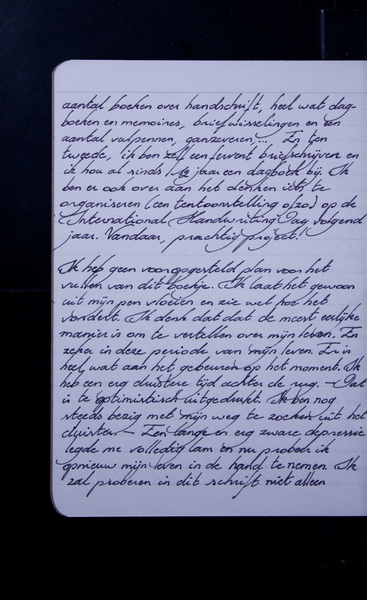 aantal boeken over handschrift, heel wat dag-
boeken en memoires, briefwisselingen en een
aantal vulpennen, ganzeveren,... En ten
tweede, ik ben zelf een fervent briefschrijver en
ik hou al sinds jaar een dagboek bij. Ik
ben er ook over aan het denken iets te
organiseren (een tentoonstelling o/zo) op de
International Handwriting Day volgend
jaar. Vandaar, prachtig project!
Ik heb geen vooropgesteld plan voor het
vullen van dit boekje. Ik laat het gewoon
uit mijn pen vloeien en zie wel hoe het
vordert. Ik denk dat dat de meest eerlijke
manier is om te vertellen over mijn leven. En
zeker in deze periode van mijn leven. Er is
heel wat aan het gebeuren op het moment. Ik
heb een erg duistere tijd achter de rug. - Dat
is te optimistisch uitgedrukt. Ik ben nog
steeds bezig met mijn weg te zoeken uit het
duister - Een lange en erg zware depressie
legde me volledig lam en nu probeer ik
opnieuw mijn leven in de hand te nemen. Ik
zal proberen in dit schrift niet alleen